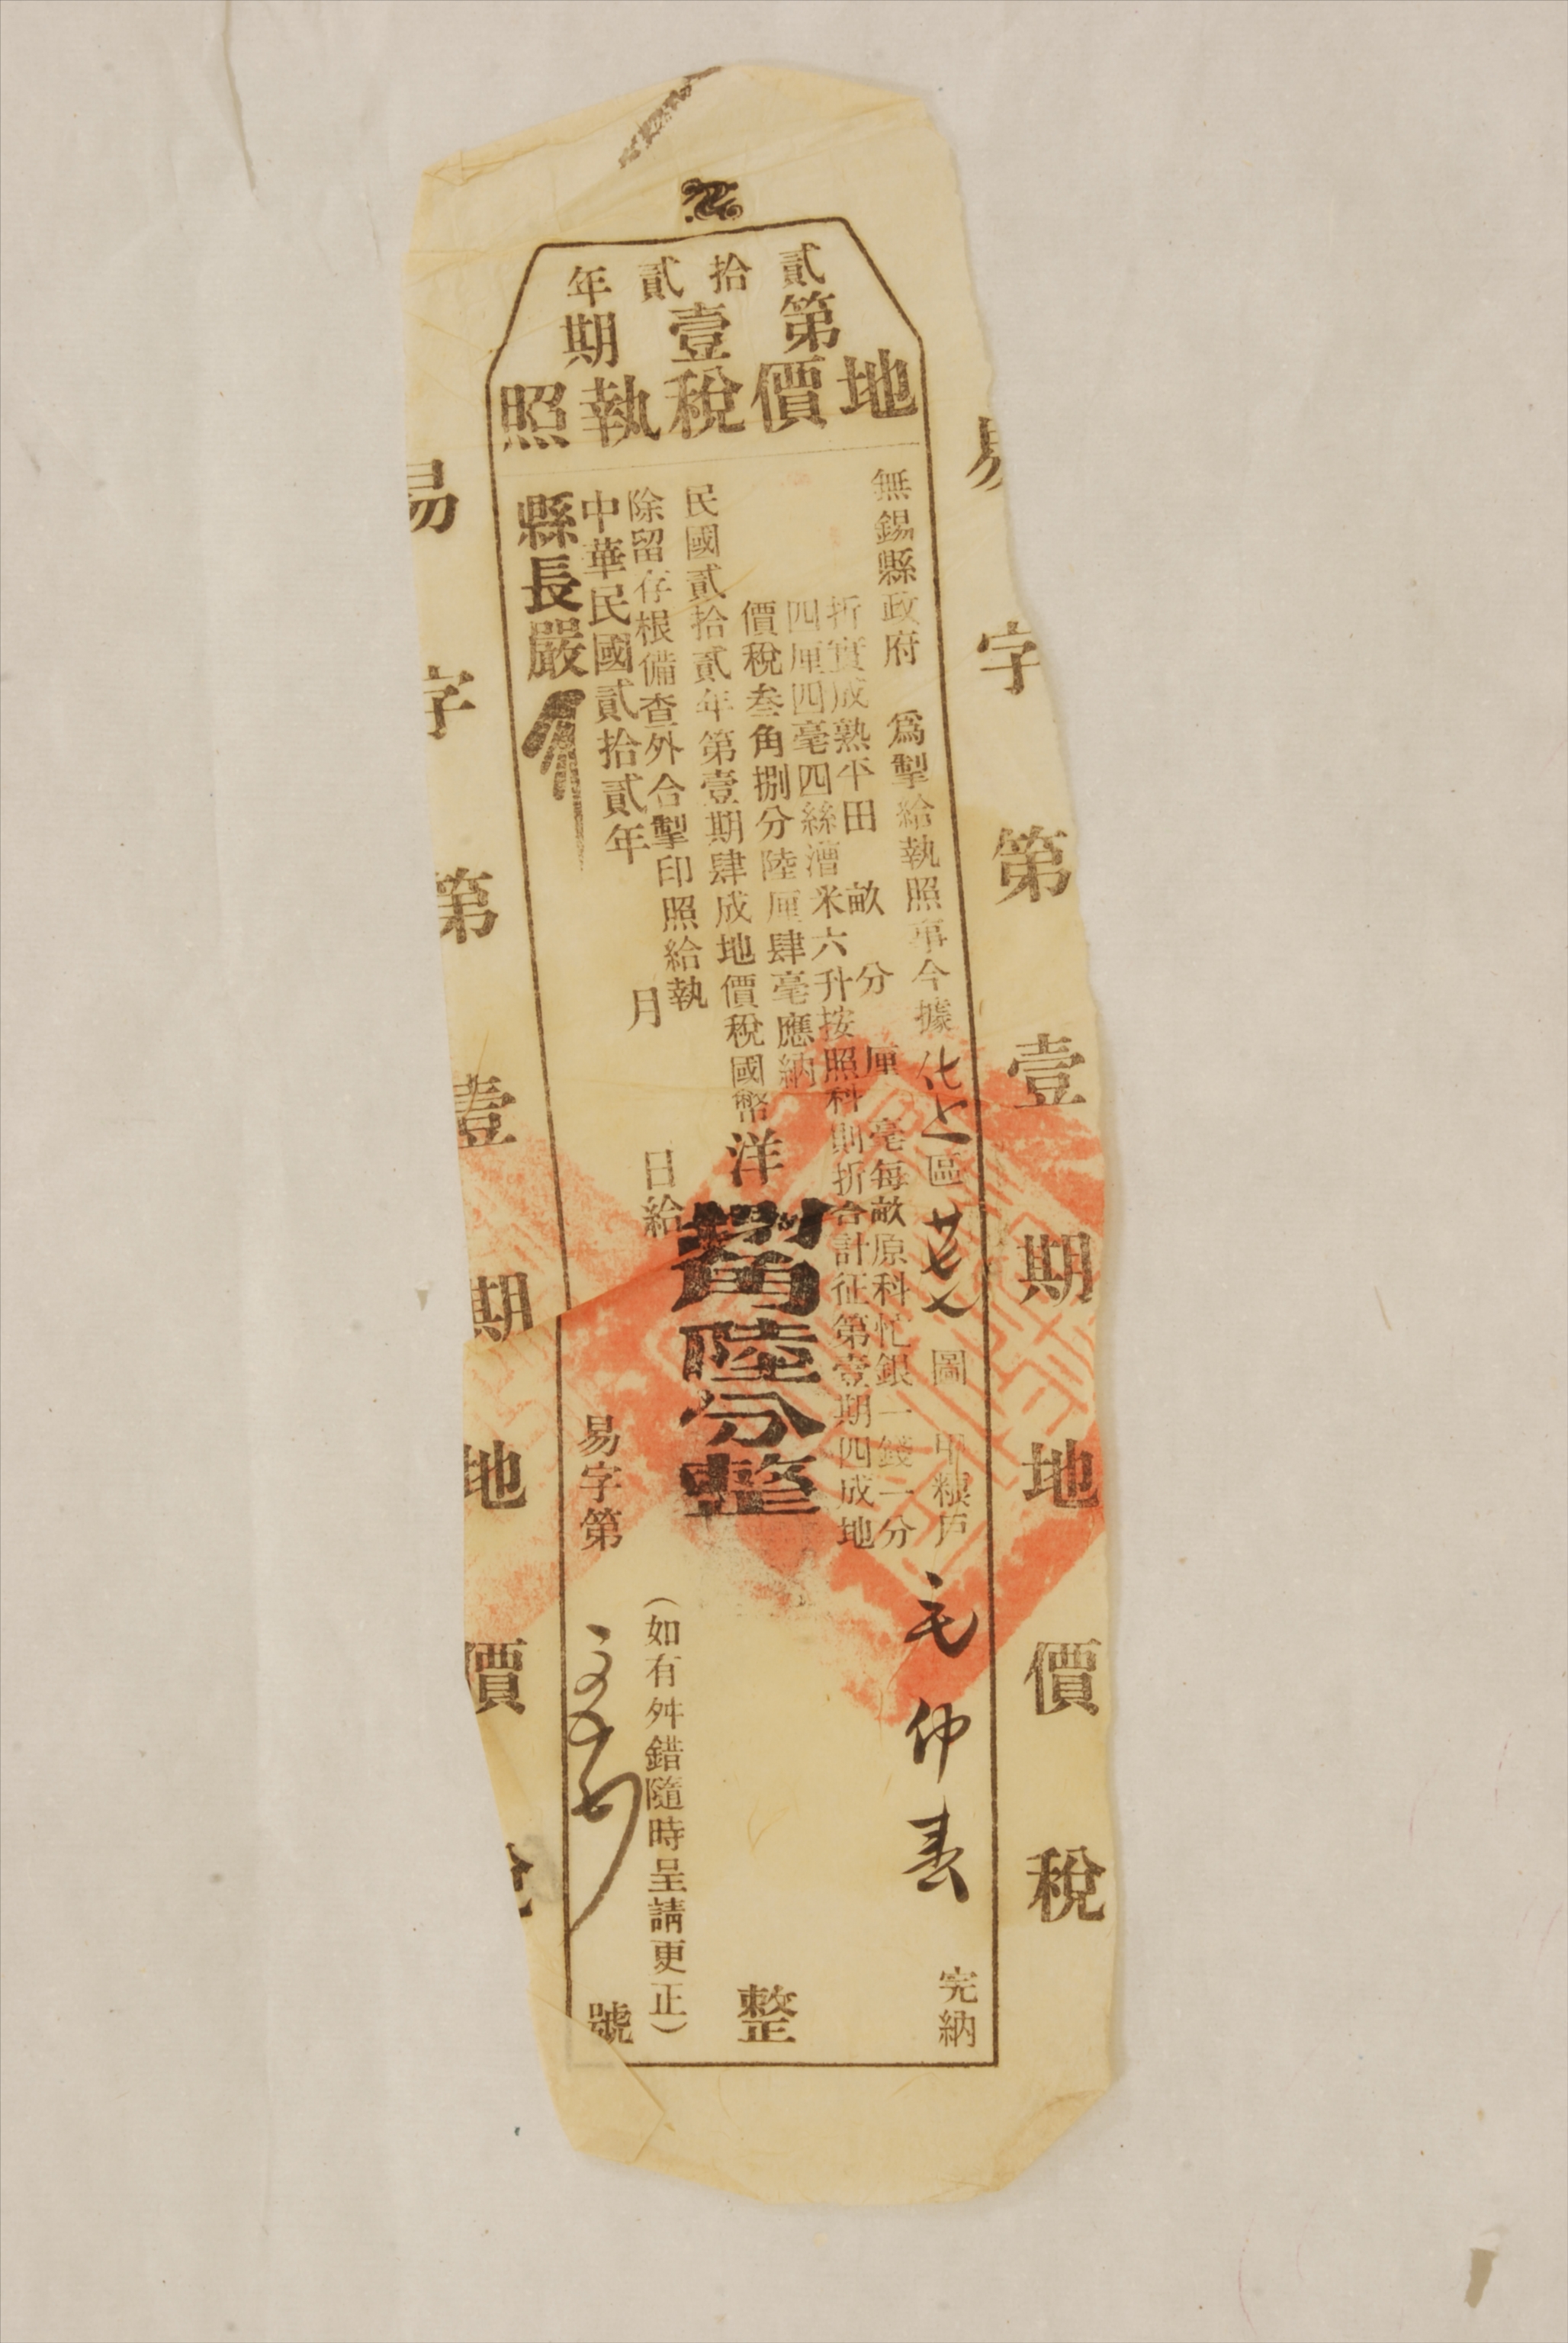 貳拾貳年
第壹期
地價稅執照
無錫縣政府 爲掣給執照事今據化上區圖甲糧戶毛仲春完納
折實成熟平田 畝 分 厘 毫每畝原科忙銀一錢一分
四厘四毫四絲漕米六升按照科則折合計征第壹期四成地
價稅叁角捌分陸厘肆毫應納
民國貳拾貳年第壹期肆成地價稅國幣洋角陸分整 整
除留存根備查外合掣印照給執
(如有舛錯隨時呈請更正)
中華民國貳拾貳年 月 日給
縣長嚴
易字第 號
易字第壹期地價稅
易字第壹期地價稅